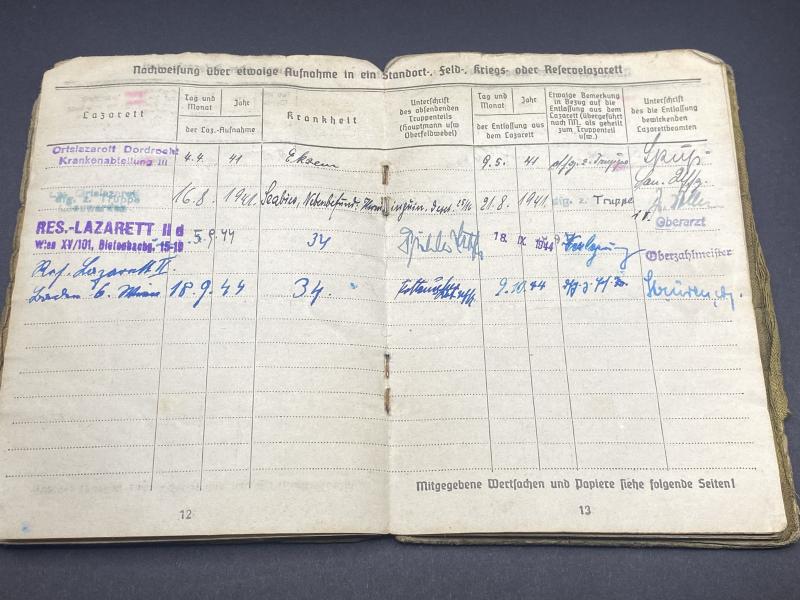 Nachweisung über etwaige Aufnahme in ein Standort-, Feld-, Kriegs- oder Reservelazarett
Lazarett
Tag und Monat
Jahr
der Laz.-Aufnahme
Krankheit
Unterschrift des absendenden Truppenteils (Hauptmann usw Oberfeldwebel)
Tag und Monat
Jahr
der Entlassung aus dem Lazarett
Etwaige Bemerkung in Bezug auf die Entlassung aus dem Lazarett (übergeführt nach NN. als geheilt zum Truppenteil usw.)
Unterschrift des die Entlassung bewirkenden Lazarettbeamten
Ortslazarett Dordrecht
Krankenabteilung III
4.4. 41 Ekzem 9.5. 41
Ortslazarett
16.8. 1941. Scabies, Nebenbefund: 21.8. 1941. z. Truppe
Oberarzt
RES.-LAZARETT II d
Wien XV/101,
5.9.44 34 18. IX. 1944 Verlegung
Oberzahlmeister
Res. Lazarett II.
Baden b. Wien 18.9.44 34. 9.10.44
Mitgegebene Wertsachen und Papiere siehe folgende Seiten!
12
13